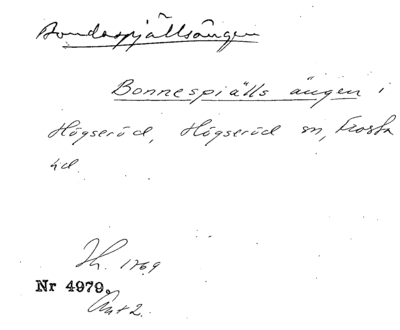 Bondespjällsängen
Bonnespiälls ängen i
Högseröd, Högseröd sn, Frosta
hd.
1769
Nr 4979.
Akt 2.